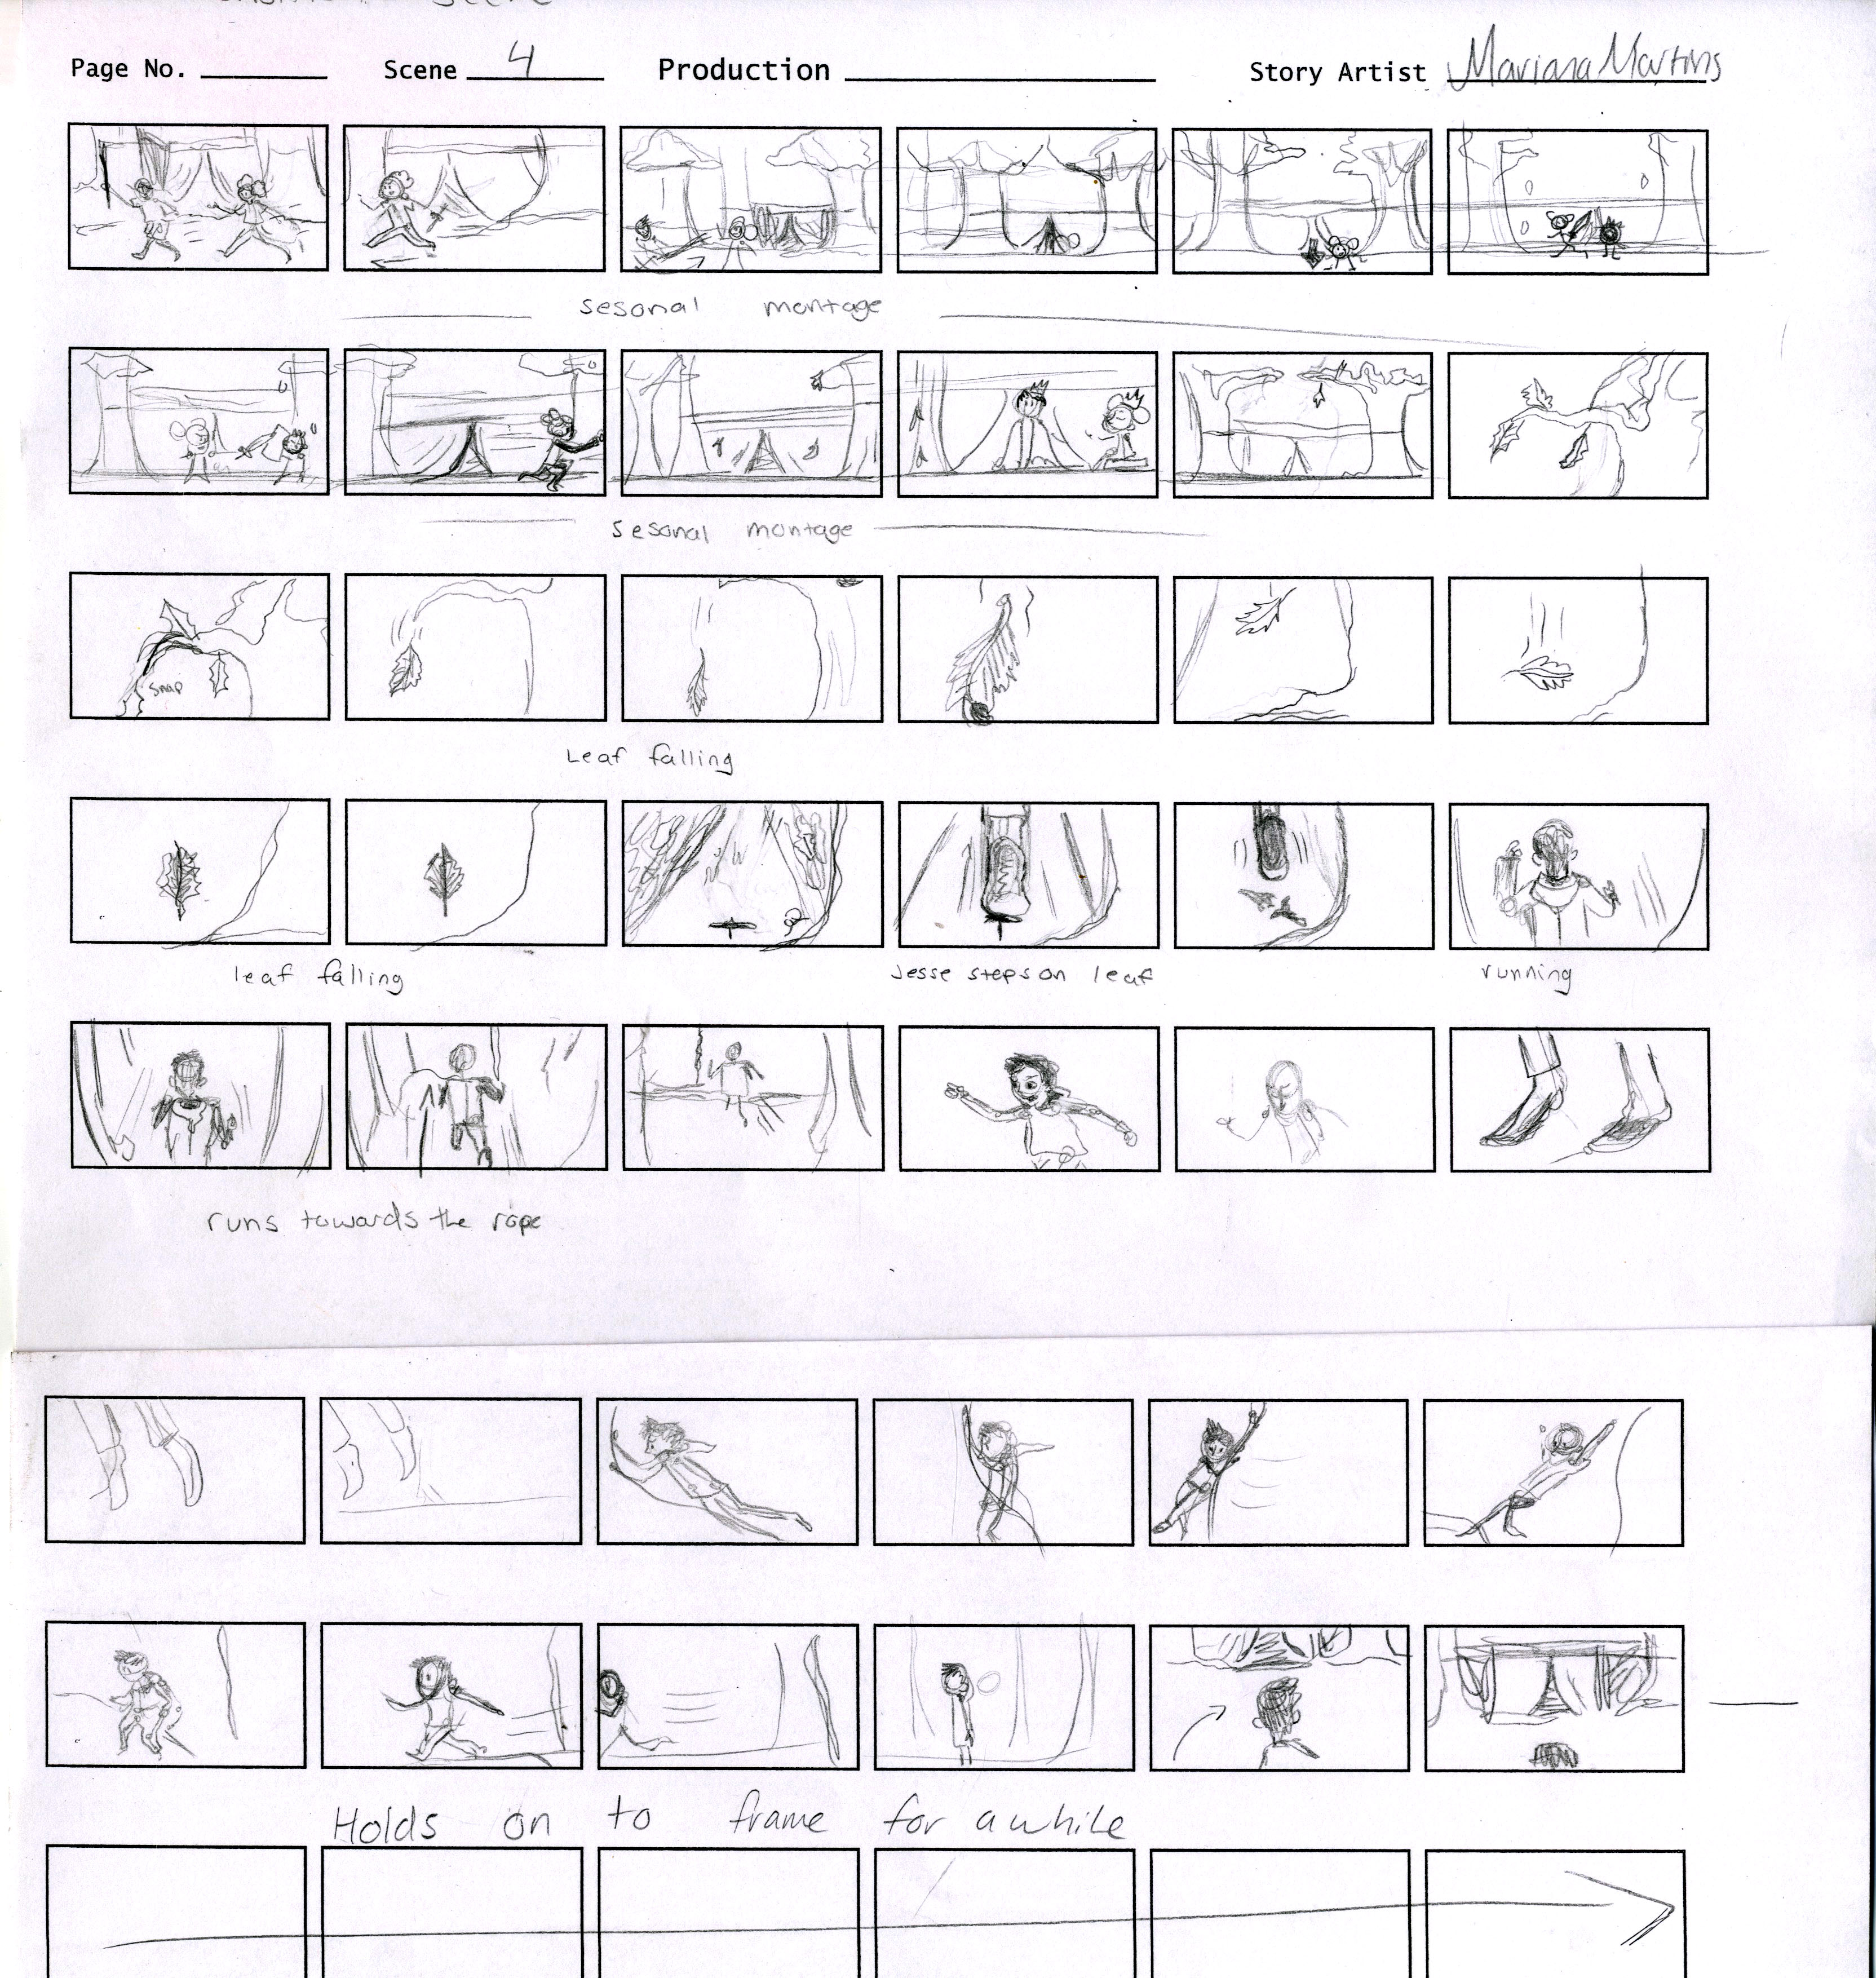 Page No. Scene 4 Production Story Artist Mariana Martins
sesonal montage
sesonal montage
snap
Leaf falling
leaf falling Jesse steps on leaf running
runs towards the rope
Holds on to frame for a while